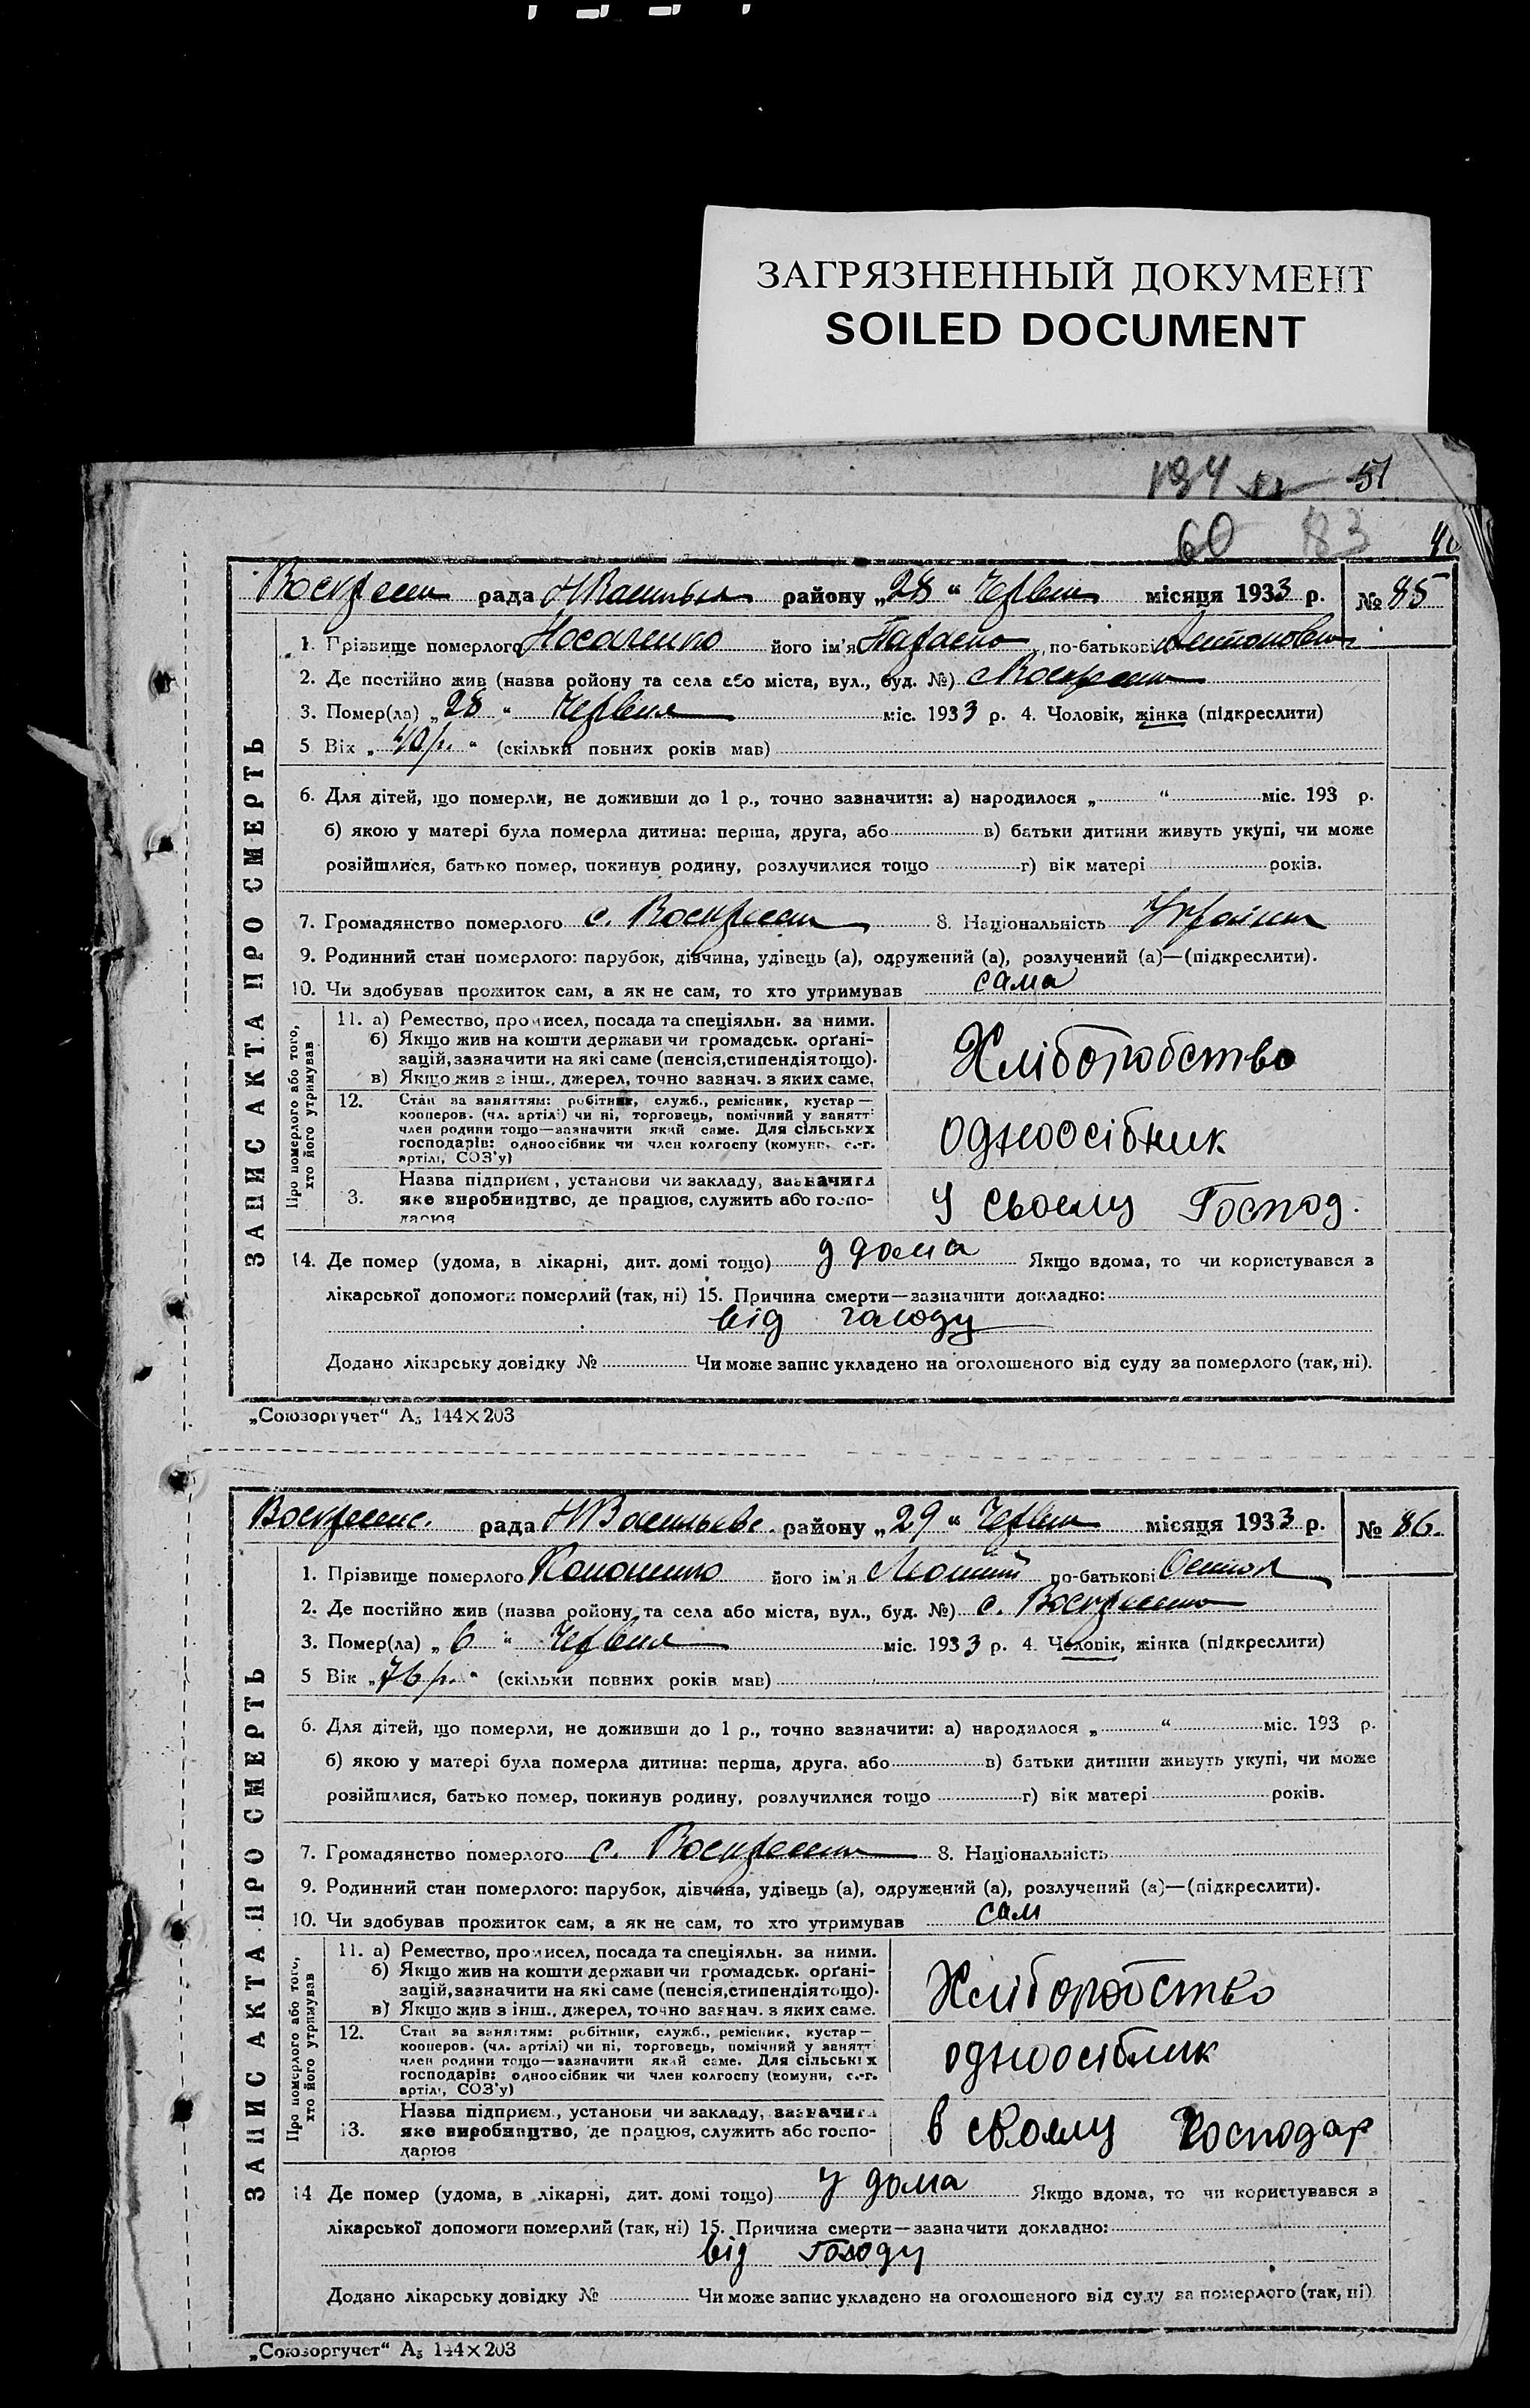 ЗАГРЯЗНЕННЫЙ ДОКУМЕНТ
SOILED DOCUMENT
194 51
60 83
рада район у „28 “ місяця 1933 р. № 85
ЗАПИС АКТА ПРО СМЕРТЬ
1. Прізвище померлого Носаленко його ім'я по-батькові
2. Де постійно жив (назва ройону та села або міста, вул., буд. №)
3. Помер(ла) „ 28 “ Червня міс. 1933 р. 4. Чоловік, жінка (підкреслити)
5 Вік „ 40 р. “ (скільки повних років мав)
6. Для дітей, що померли, не доживши до 1 р., точно зазначити: а) народилося „ “ міс. 193 р.
б) якою у матері була померла дитина: перша, друга, або в) батьки дитини живуть укупі, чи може
розійшлися, батько помер, покинув родину, розлучилися тощо г) вік матері років.
7. Громадянство померлого с. 8. Національність
9. Родинний стан померлого: парубок, дівчина, удівець (а), одружений (а), розлучений (а)—(підкреслити).
10. Чи здобував прожиток сам, а як не сам, то хто утримував сама
Про померлого або того, хто його утримував
11. а) Ремество, промисел, посада та спеціяльн. за ними.
б) Якщо жив на кошти держави чи громадськ. орґані-
зацій, зазначити на які саме (пенсія, стипендія тощо).
в) Якщо жив з інш., джерел, точно зазнач. з яких саме.
Хліборобство
12. Стан за заняттям: робітник, служб., ремісник, кустар—
кооперов. (чл. артілі) чи ні, торговець, помічний у занятті
член родини тощо—зазначити який саме. Для сільських
господарів: одноосібник чи член колгоспу (комуни, с.-г.
артілі, СОЗ'у)
одноосібник
3. Назва підприєм, установи чи закладу, зазначити
яке виробництво, де працюв, служить або госпо-
дарюв
У своєму Господ.
14. Де помер (удома, в лікарні, дит. домі тощо) у дома Якщо вдома, то чи користувався з
лікарської допомоги померлий (так, ні) 15. Причина смерти—зазначити докладно:
від голоду
Додано лікарську довідку № Чи може запис укладено на оголошеного від суду за померлого (так, ні).
„Союзоргучет“ А5 144×203
рада району „ 29 “ місяця 1933 р. № 86.
ЗАПИС АКТА ПРО СМЕРТЬ
1. Прізвище померлого Кононенко його ім'я по-батькові
2. Де постійно жив (назва ройону та села або міста, вул., буд. №) с.
3. Помер(ла) „ 6 “ Червня міс. 1933 р. 4. Чоловік, жінка (підкреслити)
5 Вік „ 76 р. “ (скільки повних років мав)
6. Для дітей, що померли, не доживши до 1 р., точно зазначити: а) народилося „ “ міс. 193 р.
б) якою у матері була померла дитина: перша, друга, або в) батьки дитини живуть укупі, чи може
розійшлися, батько помер, покинув родину, розлучилися тощо г) вік матері років.
7. Громадянство померлого с. 8. Національність
9. Родинний стан померлого: парубок, дівчина, удівець (а), одружений (а), розлучений (а)—(підкреслити).
10. Чи здобував прожиток сам, а як не сам, то хто утримував сам
Про померлого або того, хто його утримував
11. а) Ремество, промисел, посада та спеціяльн. за ними.
б) Якщо жив на кошти держави чи громадськ. орґані-
зацій, зазначити на які саме (пенсія, стипендія тощо).
в) Якщо жив з інш., джерел, точно зазнач. з яких саме.
Хліборобство
12. Стан за заняттям: робітник, служб., ремісник, кустар—
кооперов. (чл. артілі) чи ні, торговець, помічний у занятті
член родини тощо—зазначити який саме. Для сільських
господарів: одноосібник чи член колгоспу (комуни, с.-г.
артілі, СОЗ'у)
одноосібник
13. Назва підприєм., установи чи закладу, зазначити
яке виробництво, де працюв, служить або госпо-
дарюв
в своєму Господар
14 Де помер (удома, в лікарні, дит. домі тощо) у дома Якщо вдома, то чи користувався з
лікарської допомоги померлий (так, ні) 15. Причина смерти—зазначити докладно:
від голоду
Додано лікарську довідку № Чи може запис укладено на оголошеного від суду за померлого (так, ні)
„Союзоргучет“ А5 144×203